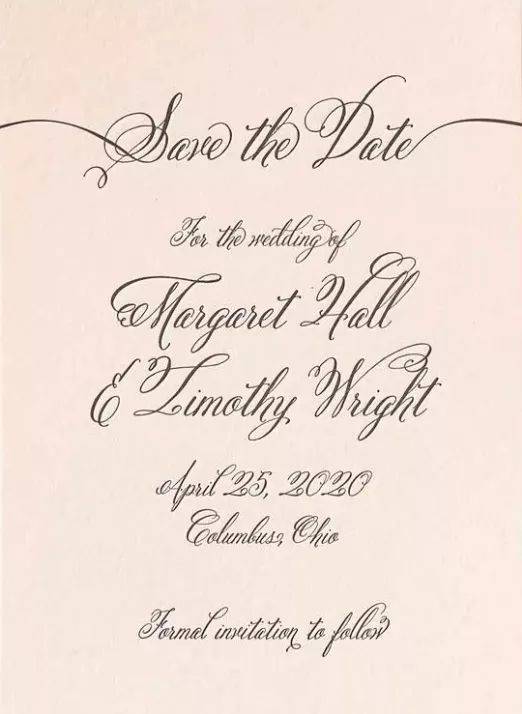 Save the Date
For the wedding of
Margaret Hall
& Timothy Wright
April 25, 2020
Columbus, Ohio
Formal invitation to follow